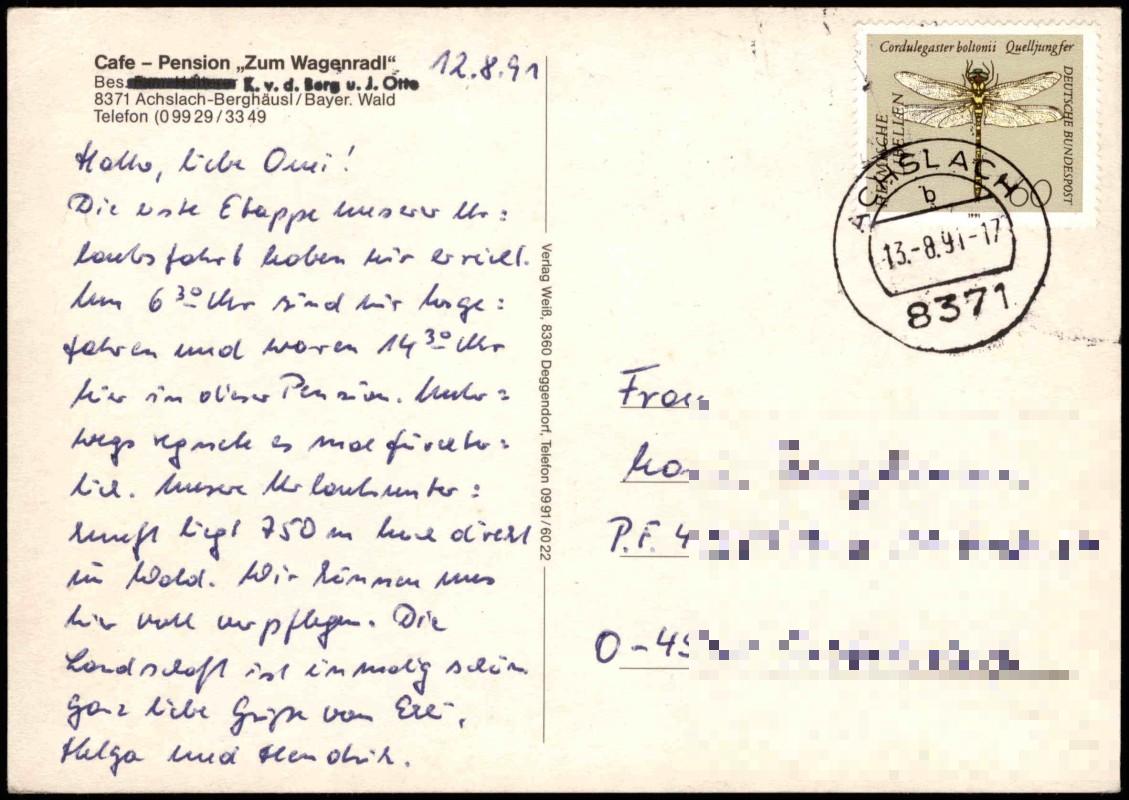 Cafe – Pension „Zum Wagenradl“
Bes. K. v. d. Berg u. J. Otte
8371 Achslach-Berghäusl/Bayer. Wald
Telefon (0 99 29 / 33 49
12.8.91
Hallo, liebe Omi!
Die erste Etappe unserer Ur=
laubsfahrt haben wir erreicht.
Um 6 30 Uhr sind wir losge=
fahren und waren 14 30 Uhr
hier in dieser Pension. Unter=
wegs regnete es mal fürchter=
lich. Unsere Urlaubsunter=
kunft liegt 750 m hoch direkt
im Wald. Wir können uns
hier voll verpflegen. Die
Landschaft ist einmalig schön
Ganz liebe Grüße von
Helga und Hendrik.
Verlag Weiß, 8360 Deggendorf, Telefon 09 91 / 60 22
Cordulegaster boltonii Quelljungfer
HEIMISCHE
LIBELLEN
DEUTSCHE BUNDESPOST
60
1991
ACHSLACH
b
13.-8.91-17
8371
Frau
P.F. 4
O-45